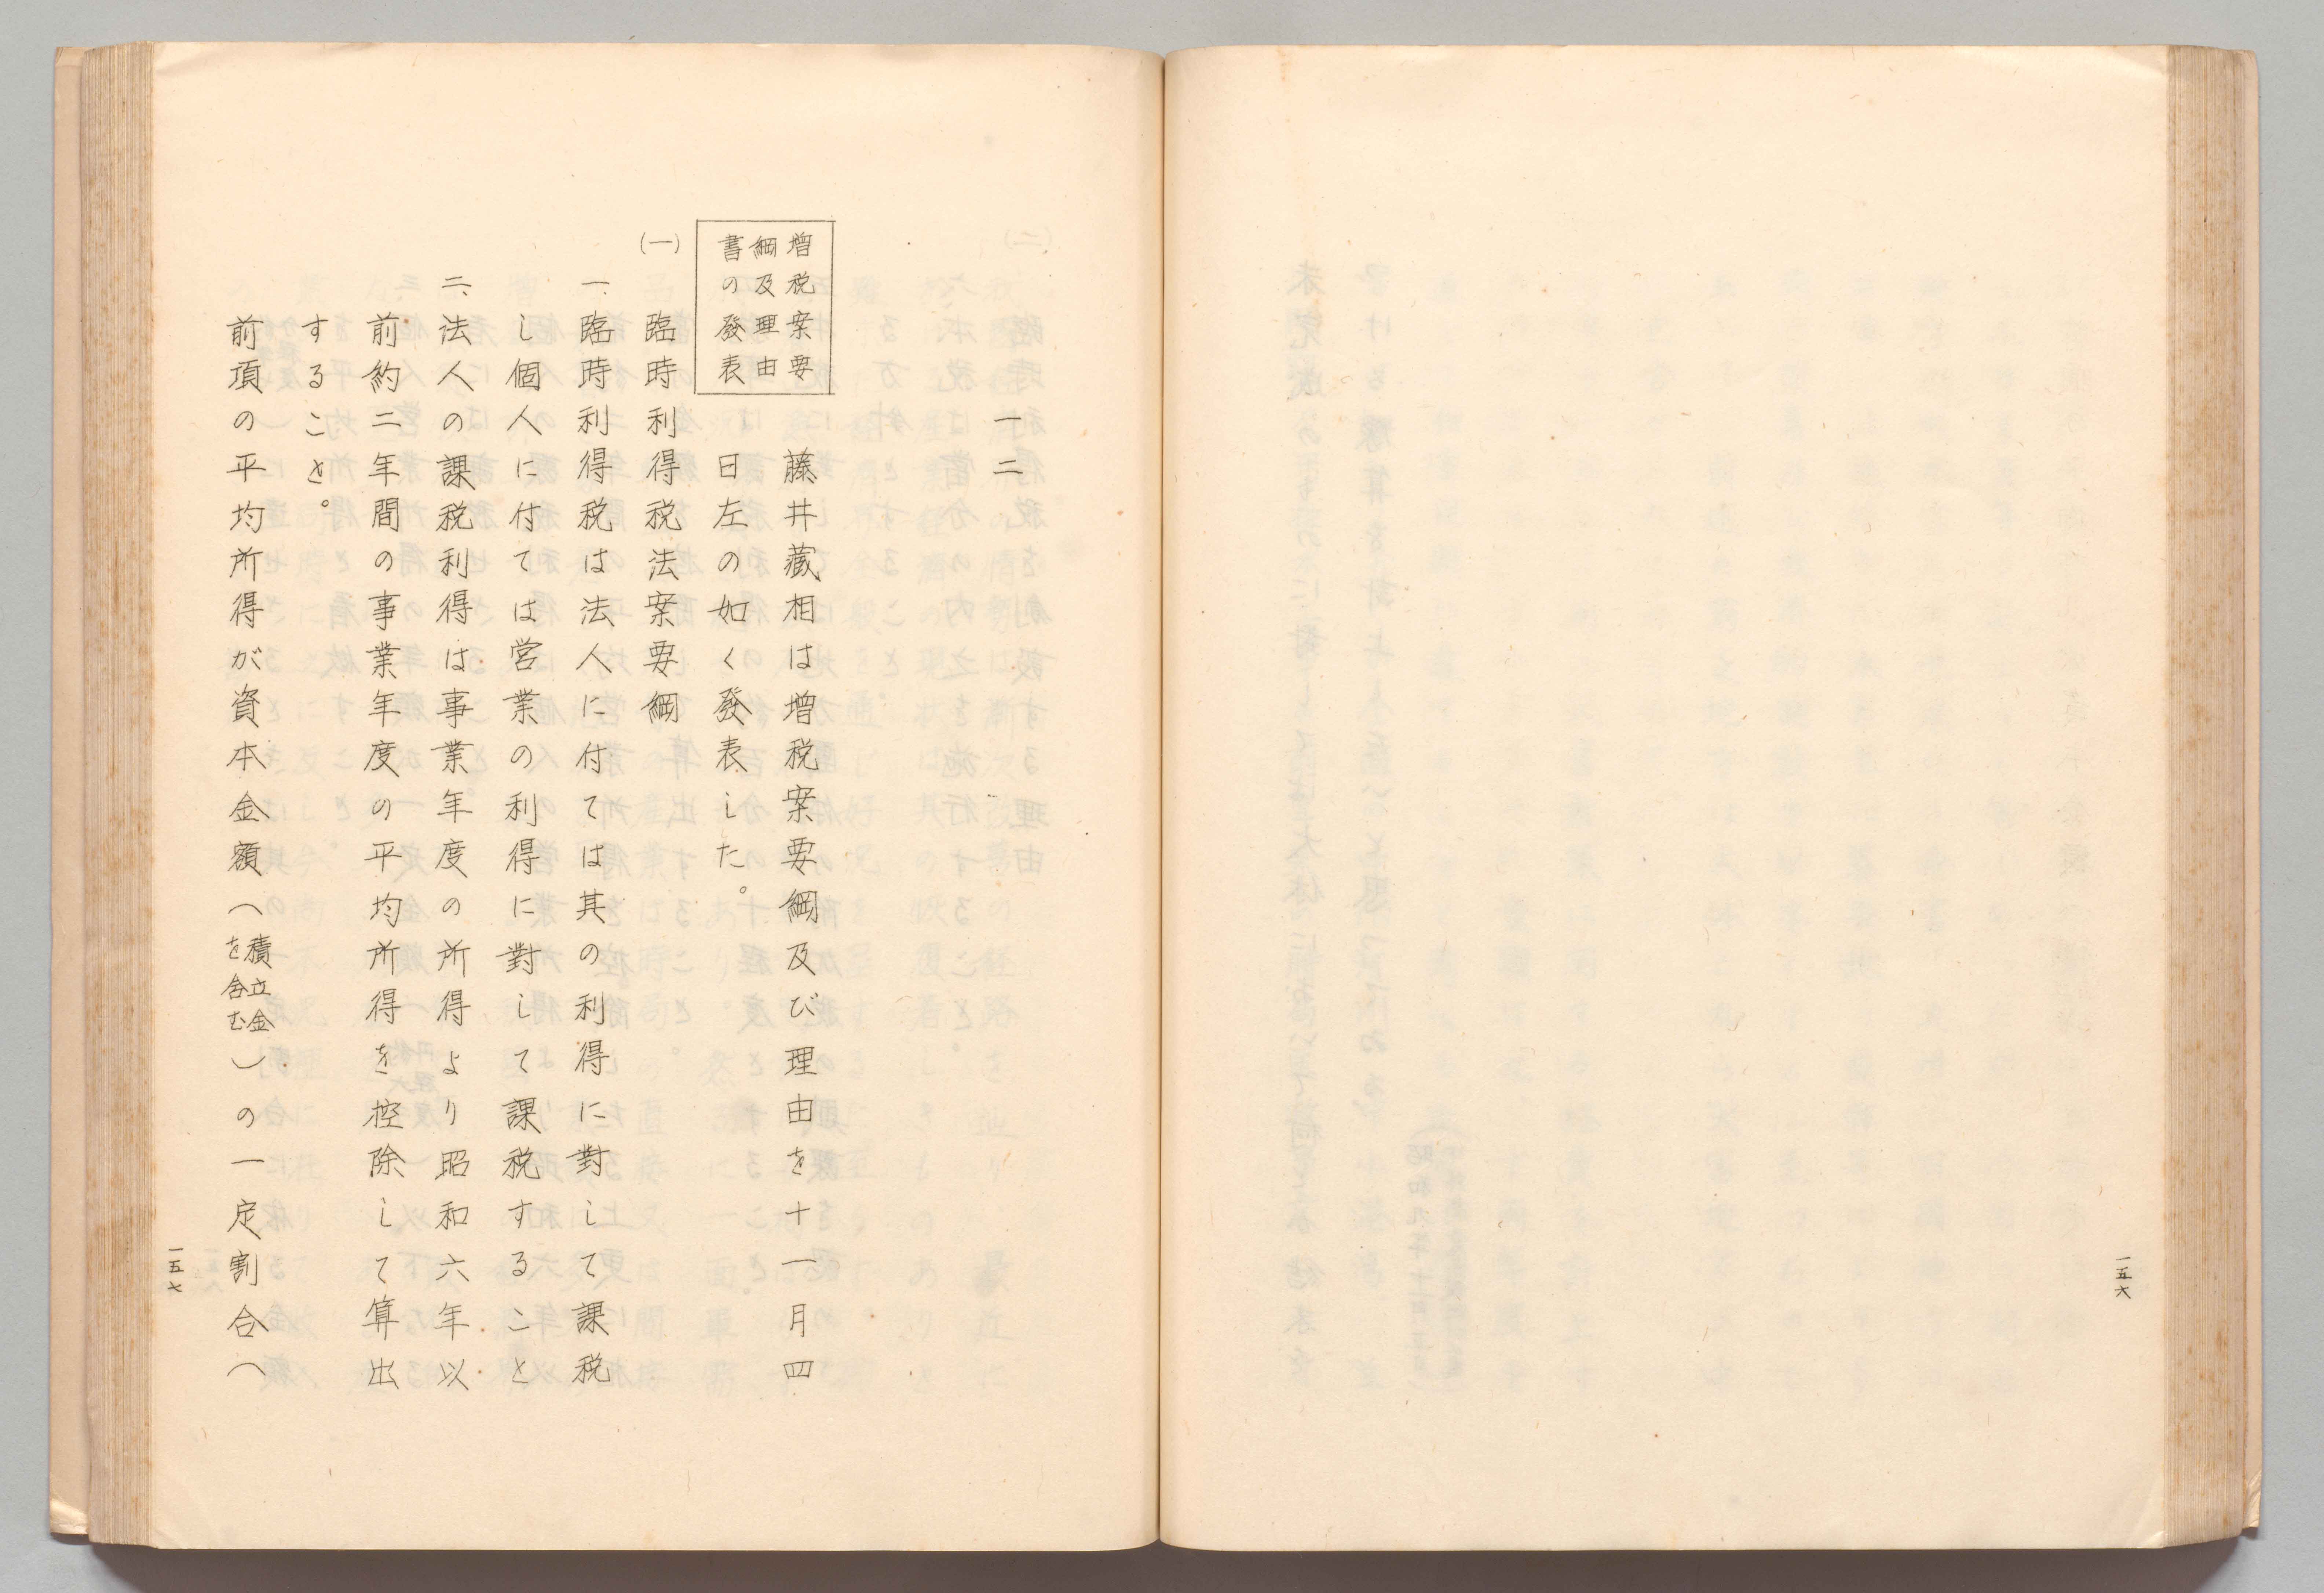 一五六
一二
増税案要
綱及理由
書の發表
藤井蔵相は増税案要綱及び理由を十一月四
日左の如く發表した。
(一) 臨時利得税法案要綱
一、臨時利得税は法人に付ては其の利得に對して課税
し個人に付ては営業の利得に對して課税すること
二、法人の課税利得は事業年度の所得より昭和六年以
前約二年間の事業年度の平均所得を控除して算出
すること。
前項の平均所得が資本金額(積立金を含む)の一定割合(
一五七